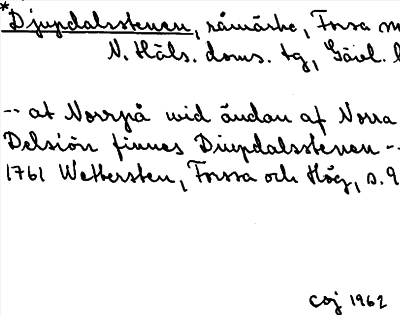 *Djupdalsstenen, råmärke, Forsa
N. Häls. doms. tg, Gävl.
-- at Norrpå wid ändan af Norra
Delsiön finnes Diupdalsstenen --
1761 Wettersten, Forssa och Hög, s. 9
COJ 1962